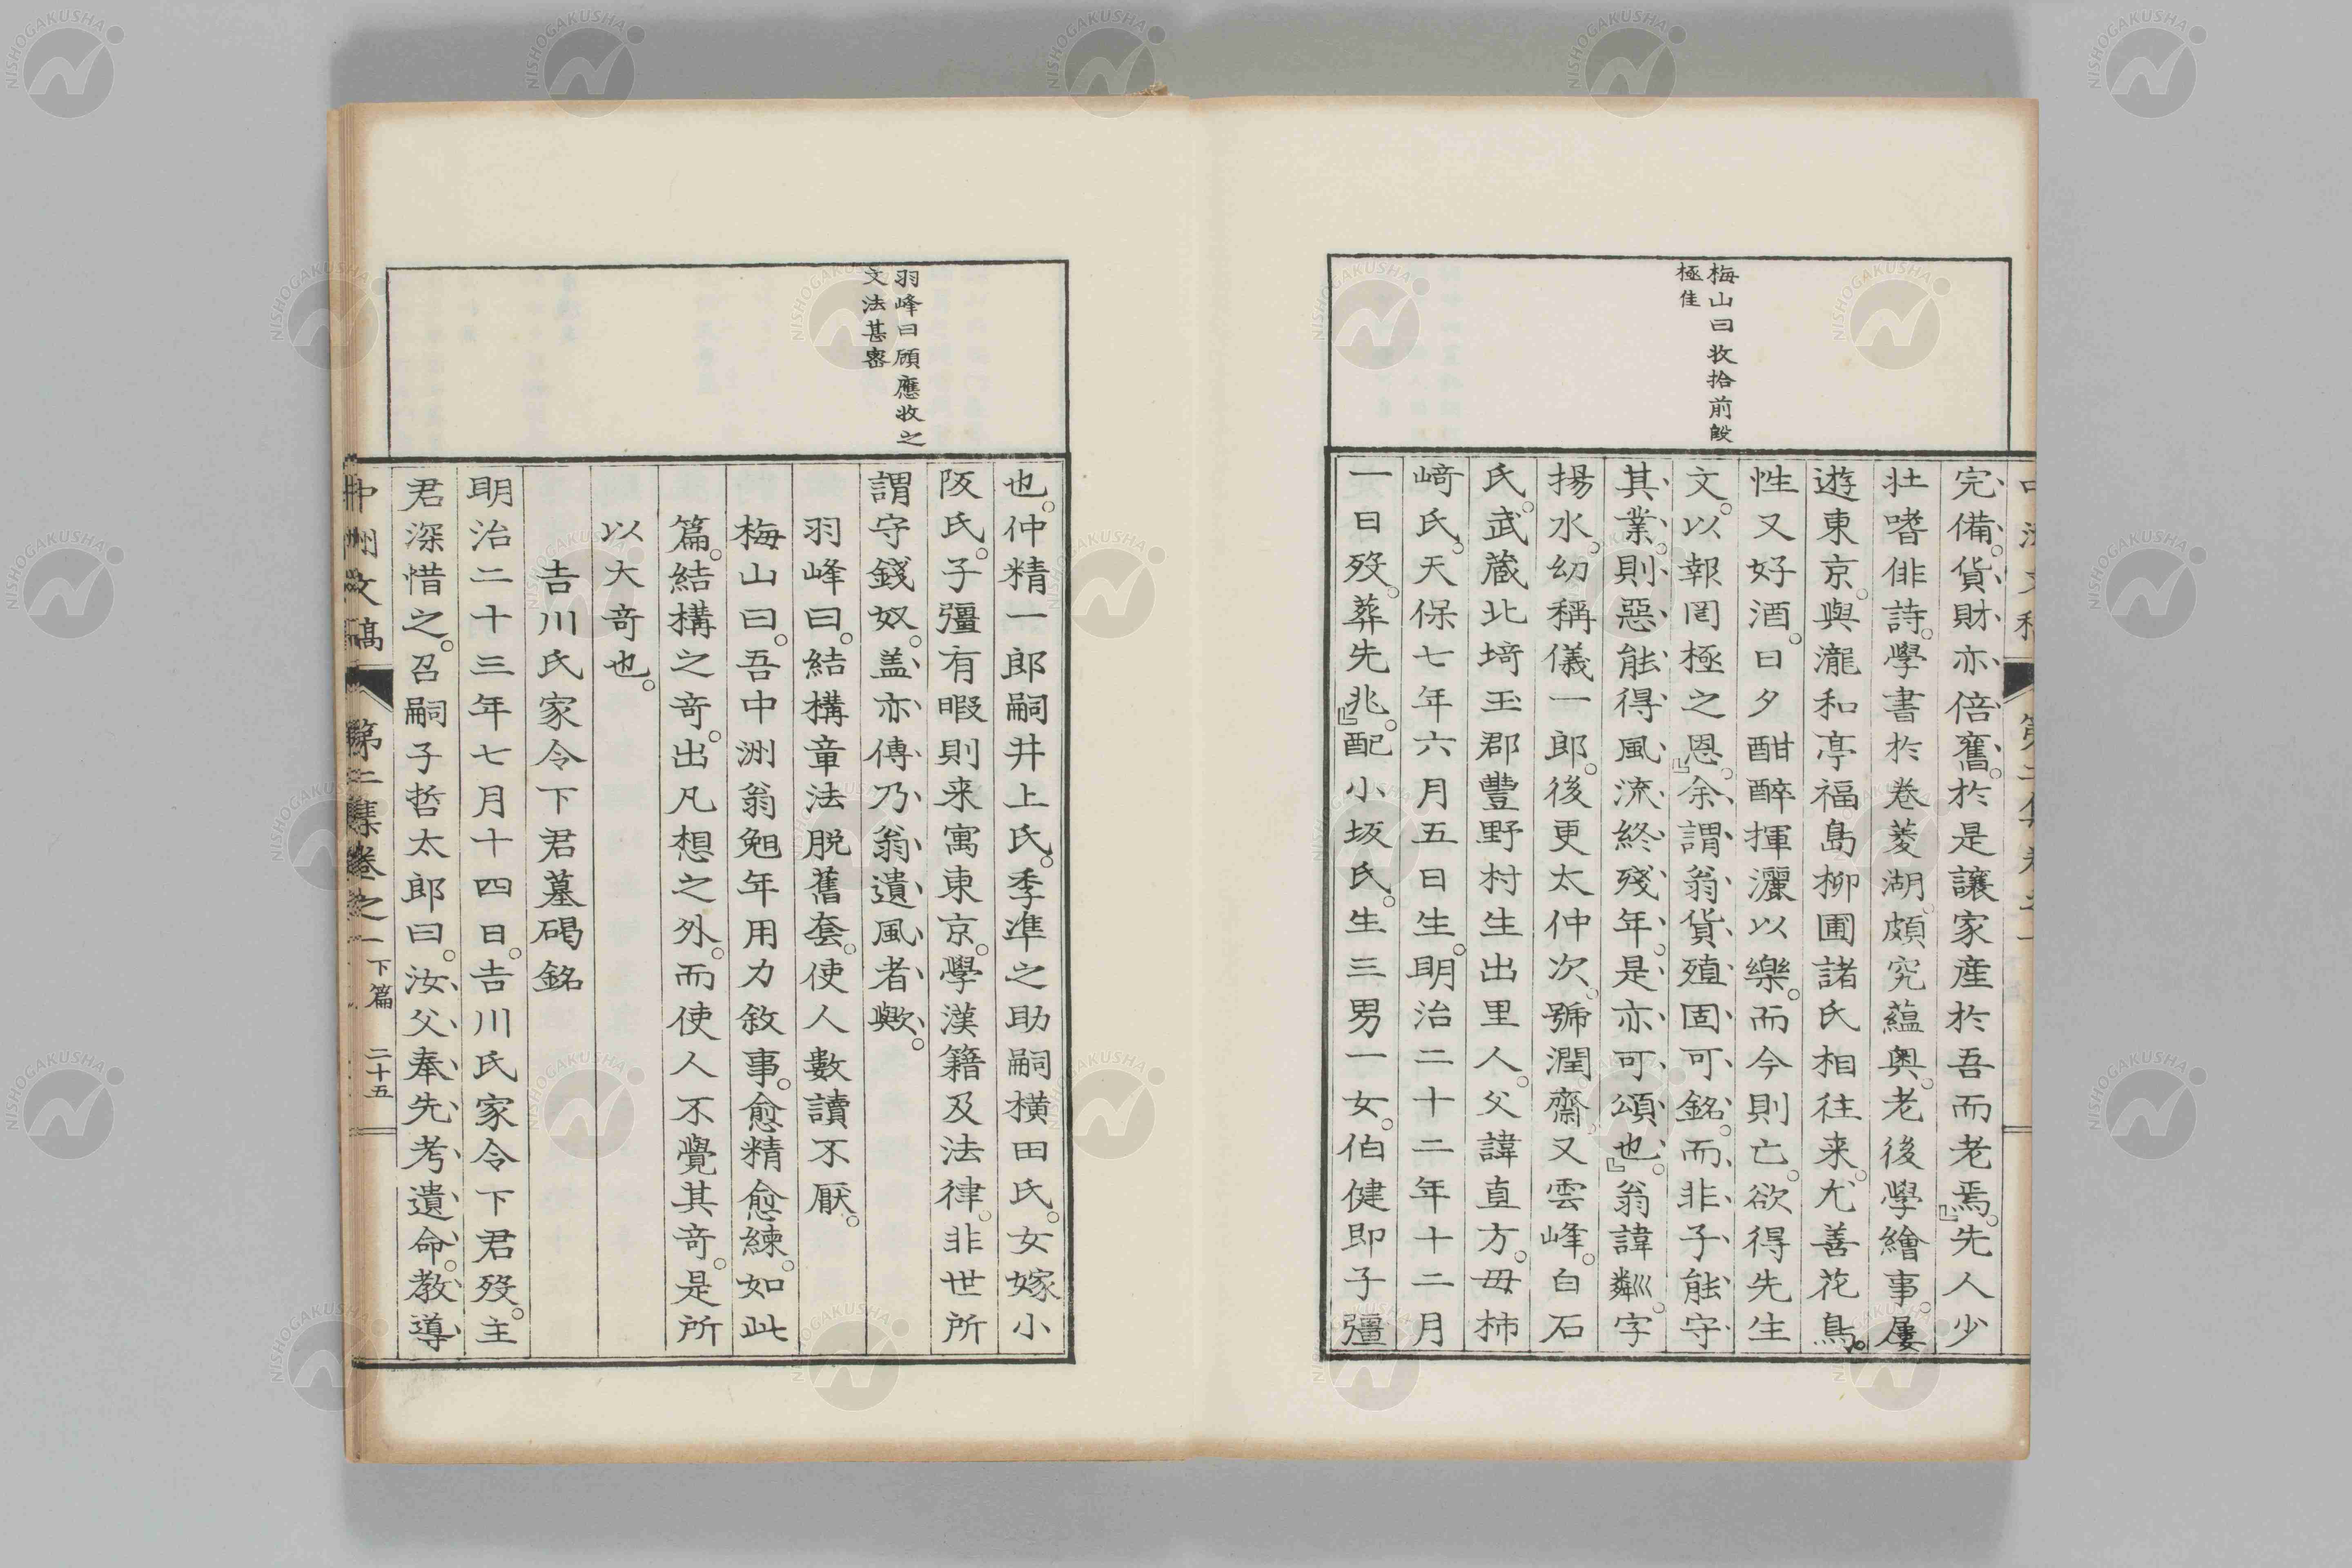 梅山曰收拾前段
極佳
完備。貨財亦倍舊。於是讓家産於吾而老焉。』先人少
壮嗜俳詩。學書於卷菱湖。頗究蘊奥。老後學繪事。屢
遊東京。與瀧和亭福島柳圃諸氏相往来。尤善花鳥。
性又好酒。日夕酣醉揮灑以樂。而今則亡。欲得先生
文。以報罔極之恩。』余謂翁貨殖固可銘。而非子能守
其業。則惡能得風流終殘年。是亦可頌也。』翁諱粼。字
揚水。幼稱儀一郎。後更太仲次。號潤齋。又雲峰。白石
氏。武蔵北埼玉郡豐野村生出里人。父諱直方。母柿
﨑氏。天保七年六月五日生。明治二十二年十二月
一日歿。葬先兆。』配小坂氏。生三男一女。伯健即子彊
羽峰曰顧應收之
文法甚密
也。仲精一郎嗣井上氏。季準之助嗣横田氏。女嫁小
阪氏。子彊有暇則来寓東京。學漢籍及法律。非世所
謂守錢奴。盖亦傳乃翁遺風者歟。
羽峰曰。結構章法脱舊套。使人數讀不厭。
梅山曰。吾中洲翁勉年用力敘事。愈精愈練。如此
篇。結構之奇。出凡想之外。而使人不覺其奇。是所
以大奇也。
吉川氏家令下君墓碣銘
明治二十三年七月十四日。吉川氏家令下君歿。主
君深惜之。召嗣子哲太郎曰。汝父奉先考遺命。教導
中洲文稿 第二集卷之一下篇 二十五